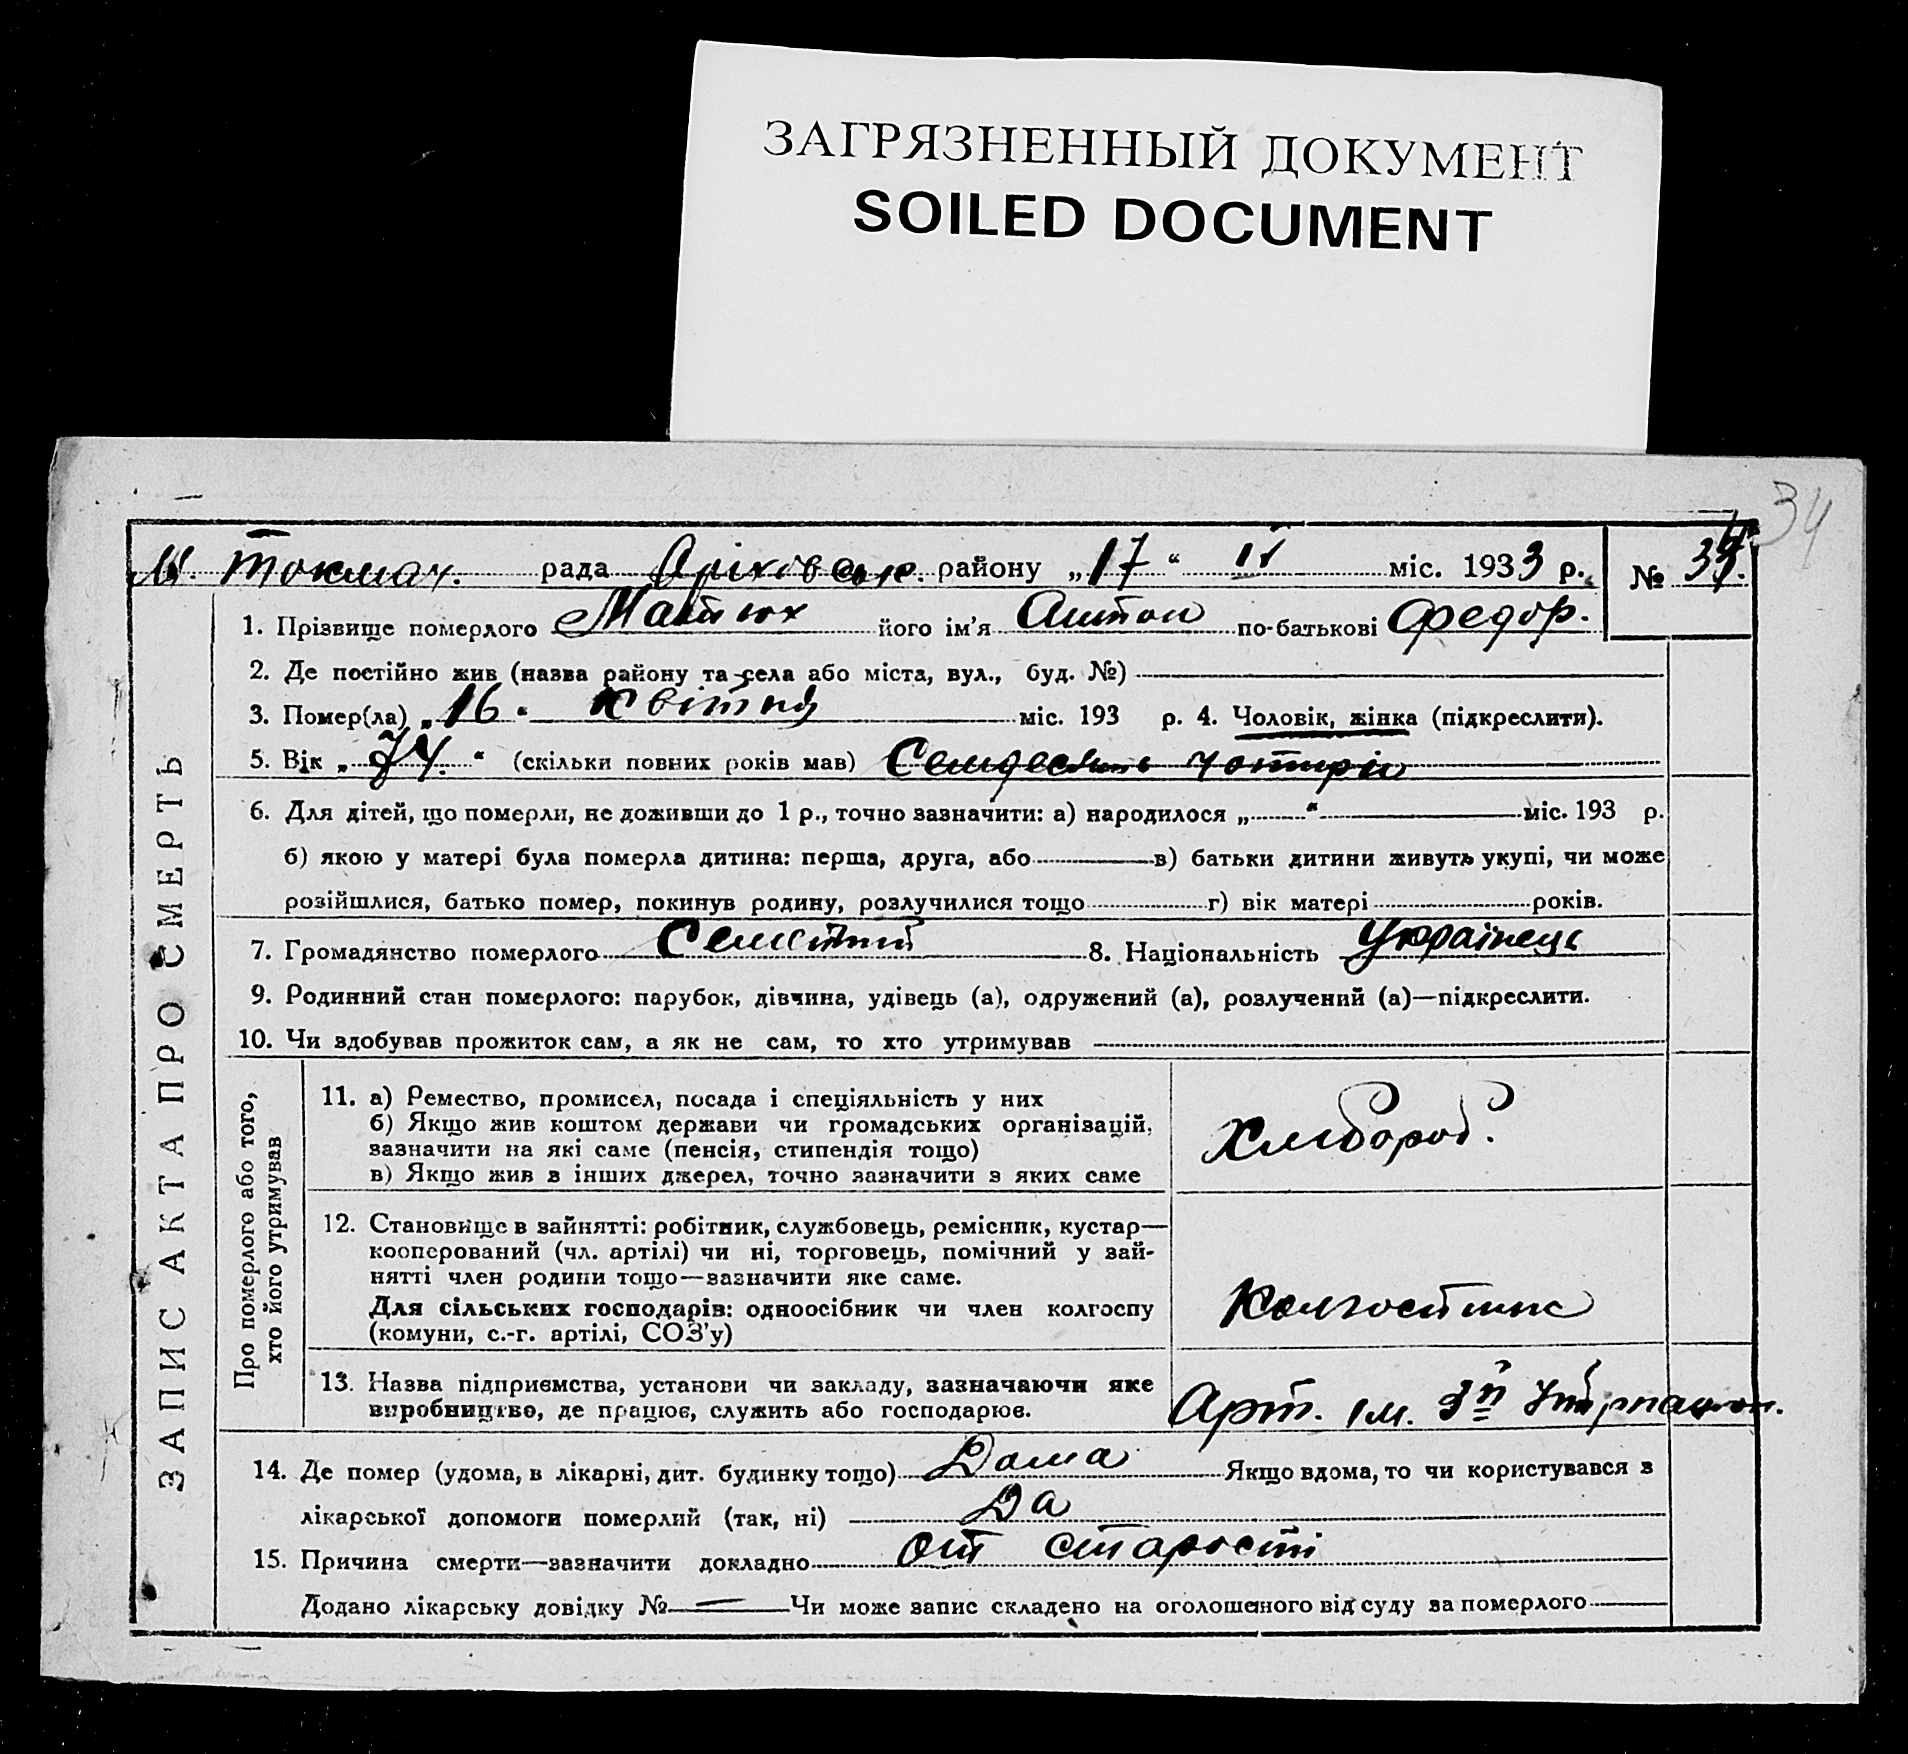 ЗАГРЯЗНЕННЫЙ ДОКУМЕНТ
SOILED DOCUMENT
34
М. Токмач. рада Оріхівськ. району „17“ IV міс. 1933 р. № 34.
1. Прізвище померлого Матюх його ім’я Антон по-батькові Федор.
2. Де постійно жив (назва району та села або міста, вул., буд. №)
3. Помер(ла) „16“ квітня міс. 193 р. 4. Чоловік, жінка (підкреслити).
5. Вік „74.“ (скільки повних років мав) Семдесять чотири
6. Для дітей, що померли, не доживши до 1 р., точно зазначити: а) народилося „ “ міс. 193 р.
б) якою у матері була померла дитина: перша, друга, або в) батьки дитини живуть укупі, чи може
розійшлися, батько помер, покинув родину, розлучилися тощо г) вік матері років.
7. Громадянство померлого 8. Національність Українець
9. Родинний стан померлого: парубок, дівчина, удівець (а), одружений (а), розлучений (а)—підкреслити.
10. Чи здобував прожиток сам, а як не сам, то хто утримував
ЗАПИС АКТА ПРО СМЕРТЬ
Про померлого або того,
хто його утримував
11. а) Ремество, промисел, посада і спеціяльність у них
б) Якщо жив коштом держави чи громадських організацій,
зазначити на які саме (пенсія, стипендія тощо)
в) Якщо жив з інших джерел, точно зазначити з яких саме
Хлібороб.
12. Становище в зайнятті: робітник, службовець, ремісник, кустар—
кооперований (чл. артілі) чи ні, торговець, помічний у зай-
нятті член родини тощо—зазначити яке саме.
Для сільських господарів: одноосібник чи член колгоспу
(комуни, с.-г. артілі, СОЗ’у)
Колгостник
13. Назва підприємства, установи чи закладу, зазначаючи яке
виробництво, де працює, служить або господарює.
Арт. ім. 3й
14. Де помер (удома, в лікарні, дит. будинку тощо) Дома Якщо вдома, то чи користувався з
лікарської допомоги померлий (так, ні) Да
15. Причина смерти—зазначити докладно от старості
Додано лікарську довідку № — Чи може запис складено на оголошеного від суду за померлого